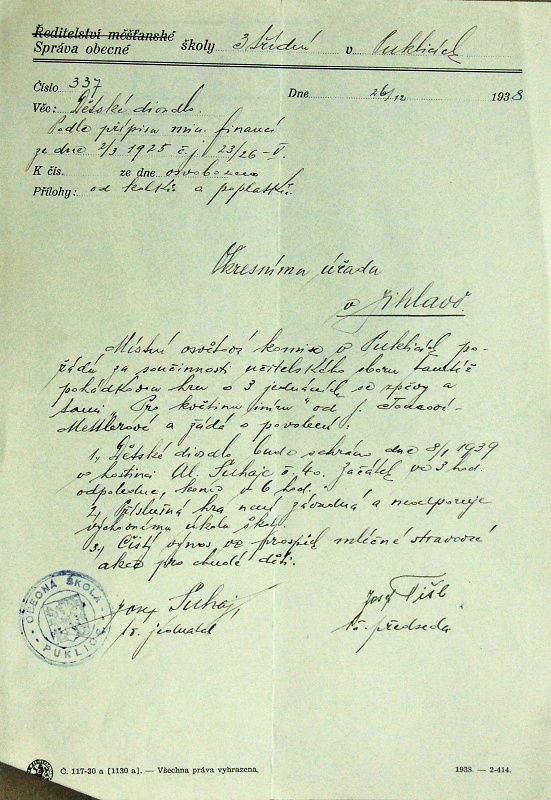 Ředitelství měšťanské
Správa obecné školy 3 třídní v Puklicích
Číslo 337 Dne 26/12 1938
Věc: Dětské divadlo.
Podle přípisu min. financí
ze dne 2/3 1925 č.j. 23/26-V.
K čís. ze dne osvobozeno
Přílohy: od kolků a poplatků.
Okresnímu úřadu
v Jihlavě.
Místní osvětová komise v Puklicích po-
řádá za součinnosti učitelského sboru tamtéž
pohádkovou hru o 3 jednáních se zpěvy a
tanci „Pro květinu míru" od J.
Mettlerové a žádá o povolení:
1., Dětské divadlo bude sehráno dne 8/1 1939
v hostinci Al. Suhaje č. 40. Začátek ve 3 hod.
odpoledne, konec v 6 hod.
2., Příslušná hra není závadná a neodporuje
výchovnému úkolu školy.
3., Čistý výnos ve prospěch mléčné stravovací
akce pro chudé děti.
OBECNÁ ŠKOLA
PUKLICE
Josef Suhaj, Josef
jednatel předseda
Č. 117-30 a [1130 a]. — Všechna práva vyhrazena. 1938. — 2-414.